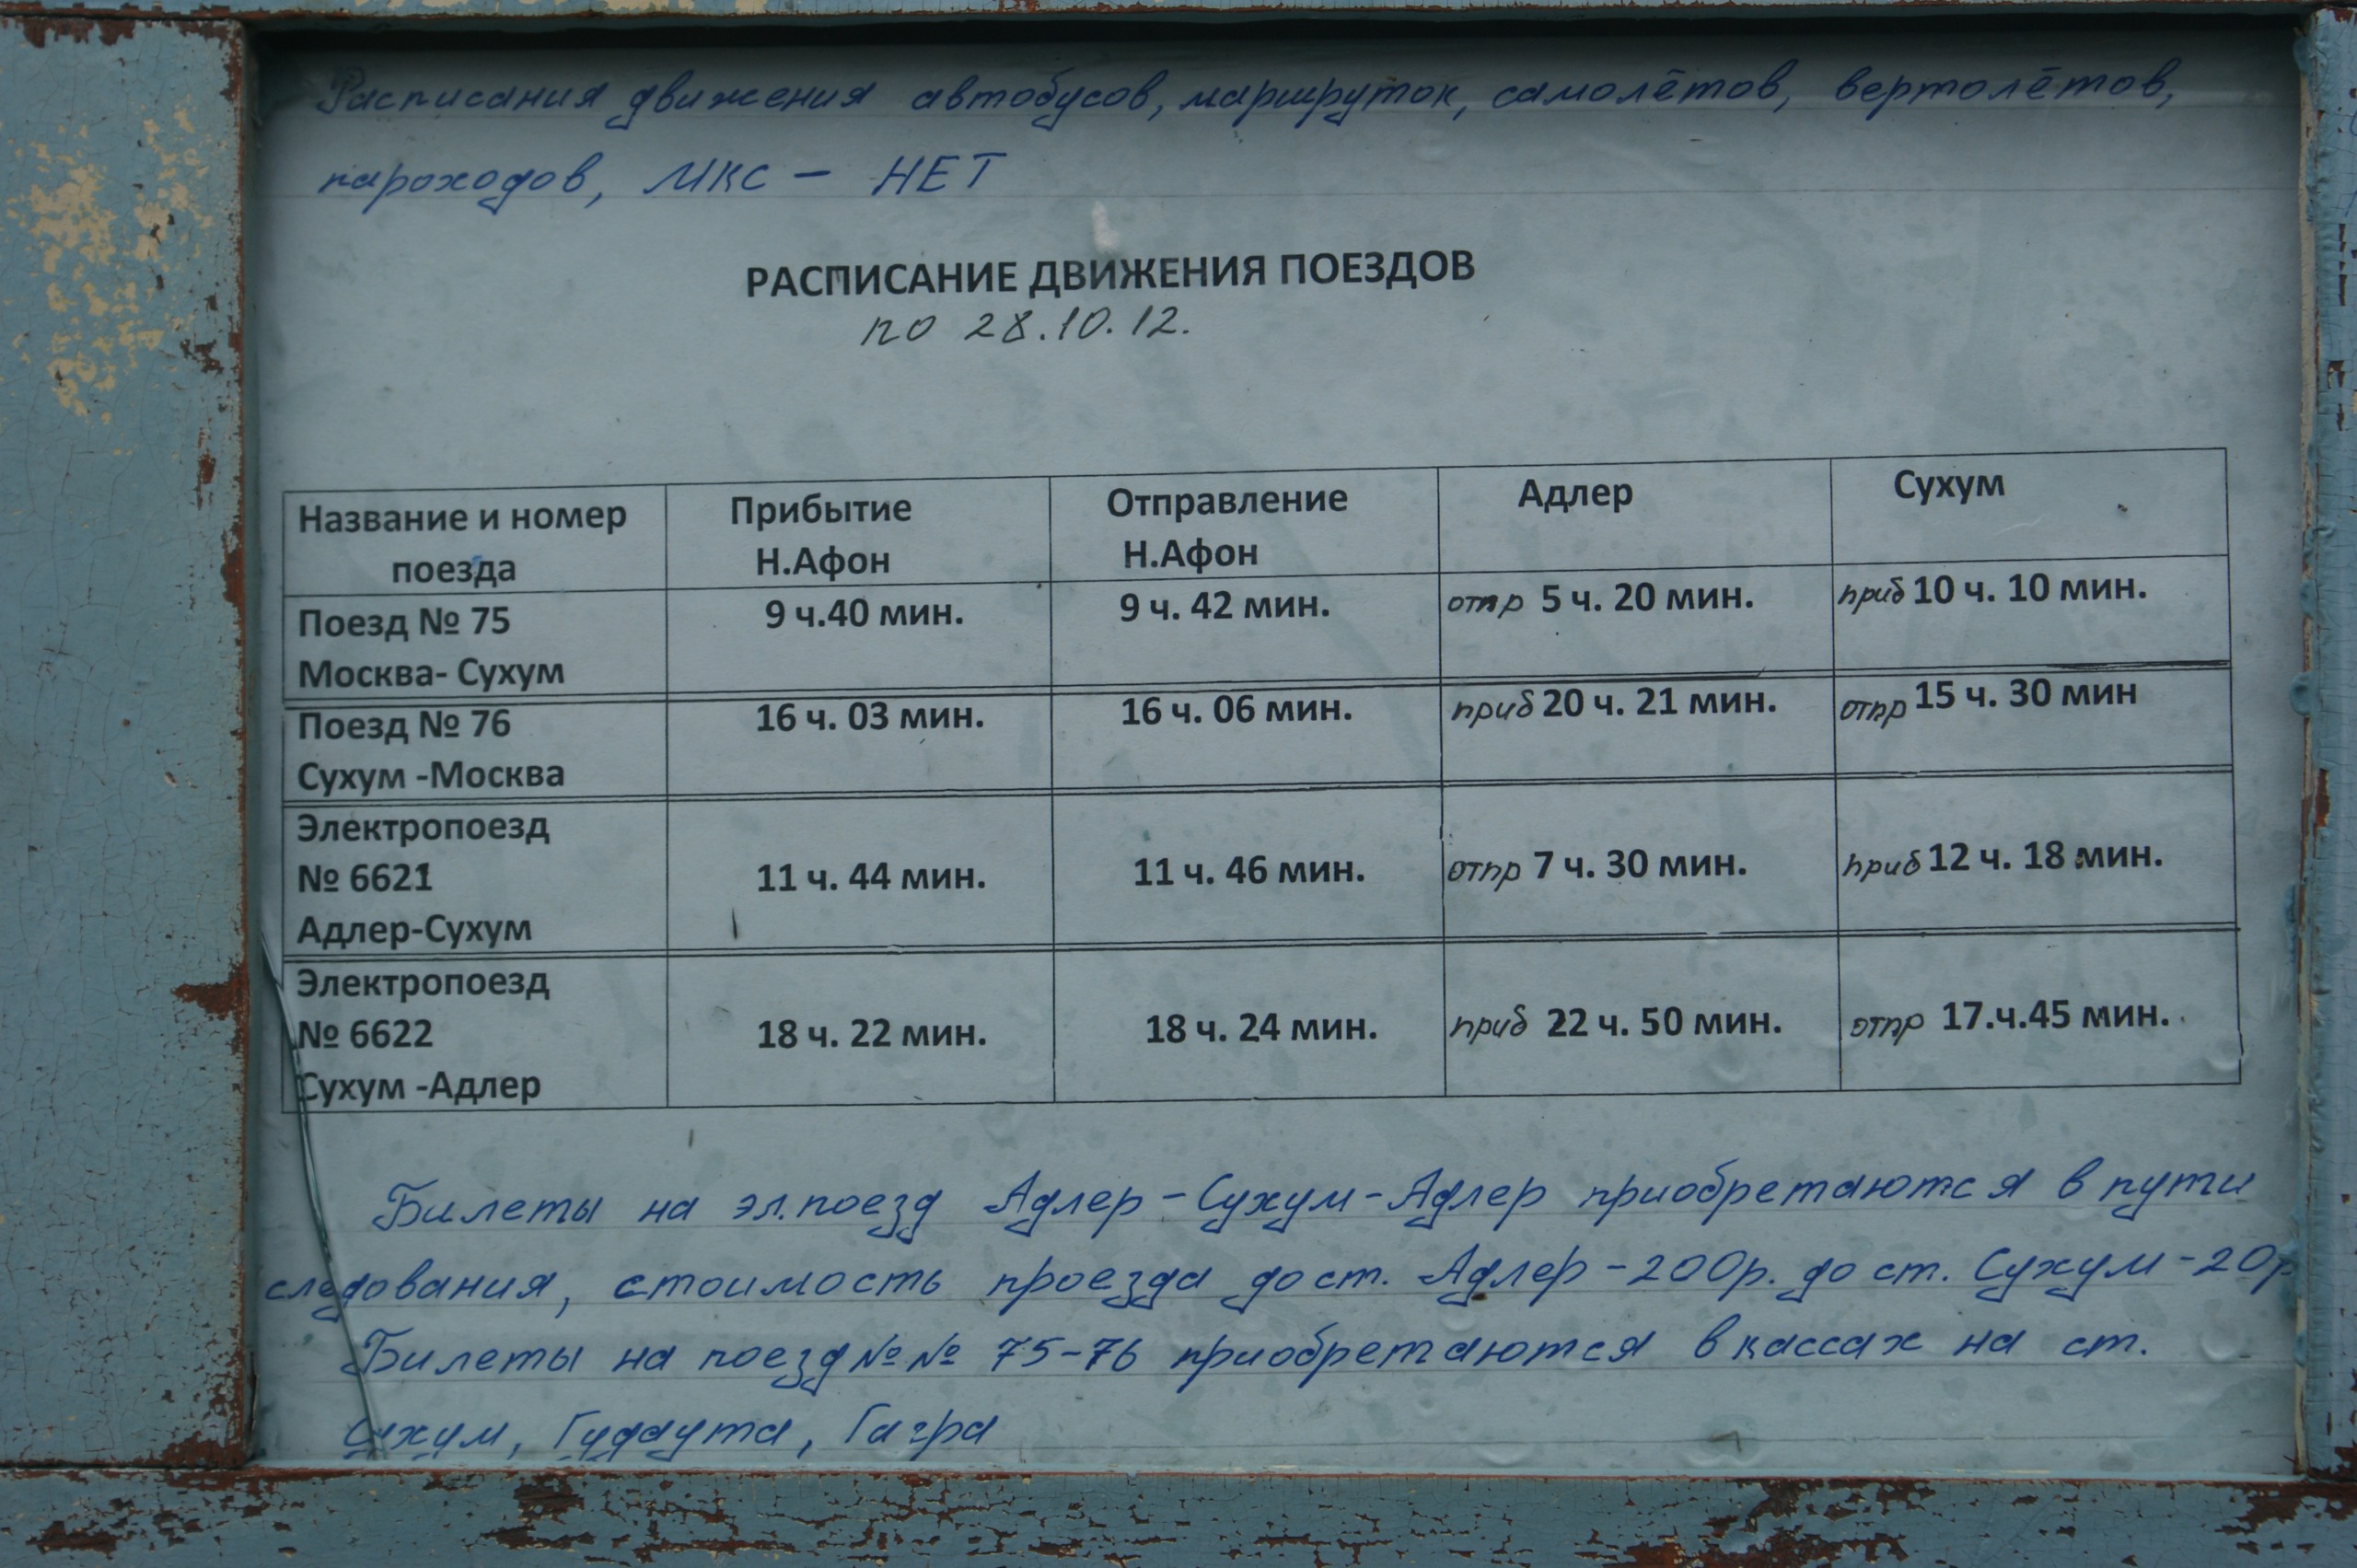 Расписания движения автобусов, маршруток, самолётов, вертолётов,
пароходов, МКС – НЕТ
РАСПИСАНИЕ ДВИЖЕНИЯ ПОЕЗДОВ
по 28.10.12.
Название и номер поезда Прибытие Н.Афон Отправление Н.Афон Адлер Сухум
Поезд № 75 Москва- Сухум 9 ч.40 мин. 9 ч. 42 мин. отпр 5 ч. 20 мин. приб 10 ч. 10 мин.
Поезд № 76 Сухум -Москва 16 ч. 03 мин. 16 ч. 06 мин. приб 20 ч. 21 мин. отпр 15 ч. 30 мин
Электропоезд № 6621 Адлер-Сухум 11 ч. 44 мин. 11 ч. 46 мин. отпр 7 ч. 30 мин. приб 12 ч. 18 мин.
Электропоезд № 6622 Сухум -Адлер 18 ч. 22 мин. 18 ч. 24 мин. приб 22 ч. 50 мин. отпр 17.ч.45 мин.
Билеты на эл.поезд Адлер-Сухум-Адлер приобретаются в пути
следования, стоимость проезда до ст. Адлер-200р. до ст. Сухум-20р
Билеты на поезд №№ 75-76 приобретаются в кассах на ст.
Сухум, Гудаута, Гагра